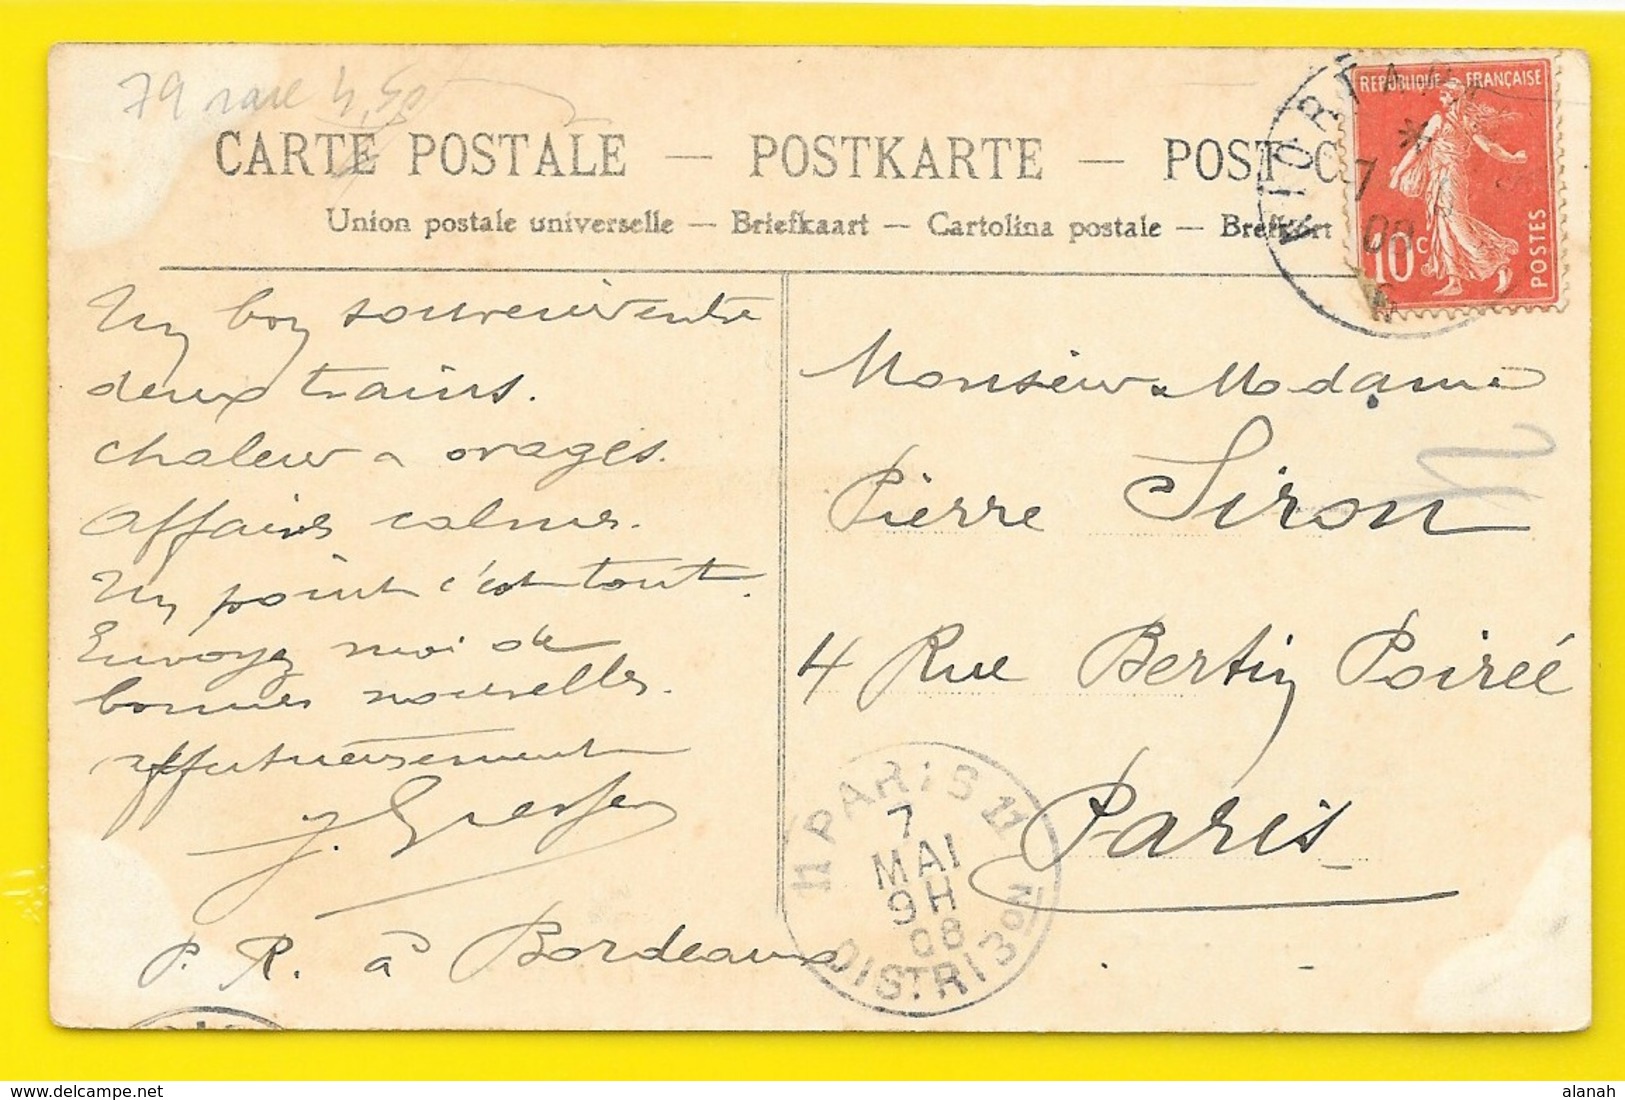 79 rare 4,50
CARTE POSTALE — POSTKARTE — POST C
Union postale universelle — Briefkaart — Cartolina postale — Brefkort
REPUBLIQUE FRANÇAISE
10c
POSTES
7
08
Un bon souvenir entre
deux trains.
Chaleur & orages.
Affaires calmes.
Un point c'est tout.
Envoyez moi de
bonnes nouvelles.
affectueusement
J.
P. R. à Bordeaux
Monsieur & Madame
Pierre Siron
4 Rue Bertin Poirée
Paris
11 PARIS 11
7
MAI
9H
08
DISTRI3ON
alanah